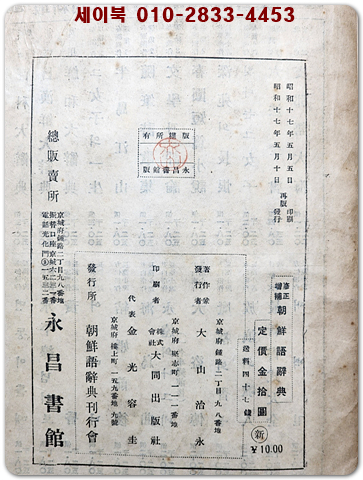 세이북 010-2833-4453
昭和十七年五月五日 印刷
昭和十七年五月十日 再版發行
版權所有
永昌書館版
修正增補 朝鮮語辭典
定價金拾圓
送料四十七錢
新
¥10.00
京城府鍾路二丁目九八番地
著作兼發行者 大山治永
京城府堅志町一一一番地
印刷者 株式會社 大同出版社
代表 金光容圭
京城府樓上町一五九番地九號
發行所 朝鮮語辭典刊行會
總販賣所
京城府鍾路二丁目九八番地
永昌書館